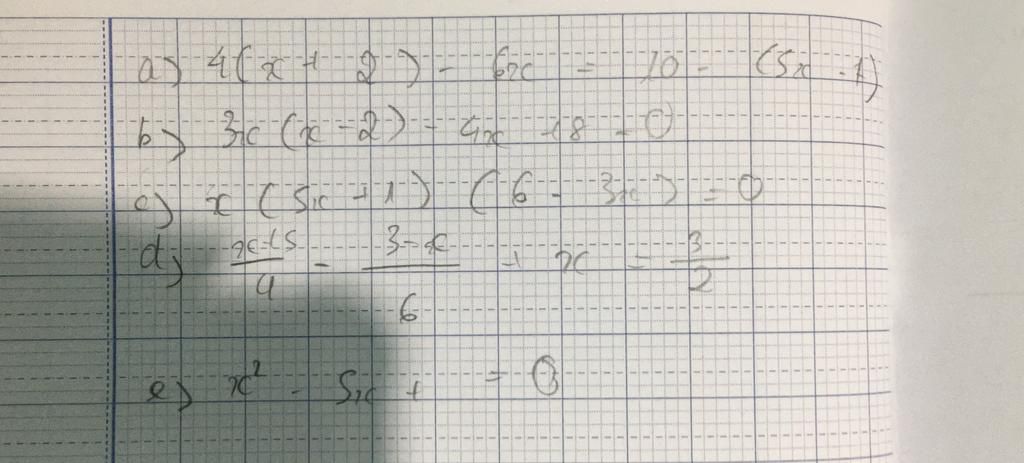 a) 4(x + 2) - 6x = 10 - (5x - 1)
b) 3x (x - 2) - 4x + 8 = 0
c) x (5x + 1) (6 - 3x) = 0
d) \frac{x+5}{4} - \frac{3-x}{6} + x = \frac{3}{2}
e) x² - 5x + = 0